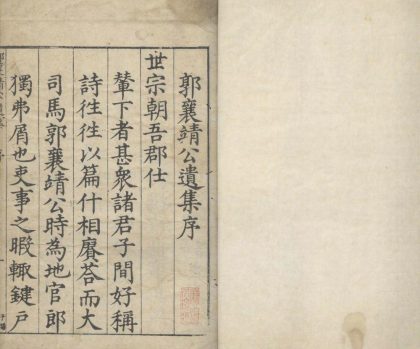 郭襄靖公遺集序
世宗朝吾郡仕
輦下者甚衆諸君子間好稱
詩徃徃以篇什相賡荅而大
司馬郭襄靖公時為地官郎
獨弗屑也吏事之暇輙鍵戶